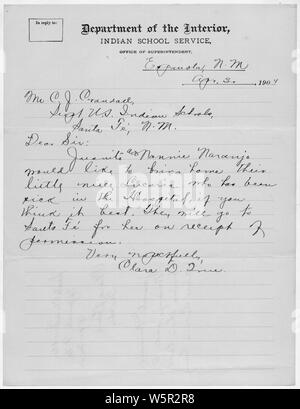 In reply to:
Department of the Interior,
INDIAN SCHOOL SERVICE,
OFFICE OF SUPERINTENDENT,
Espanola, N.M
Apr. 3. 1904
Mr C. J. Crandall,
Supt U.S. Indian School,
Santa Fé, N.M.
Dear Sir:
Juanito and Nannie Naranjo
would like to bring home their
little niece who has been
sick in the Hospital if you
think it best. They will go to
Santa Fé for her on receipt of
permission.
Very respectfully,
Clara D. True.
alamy
Image ID: W5R2R8
www.alamy.com